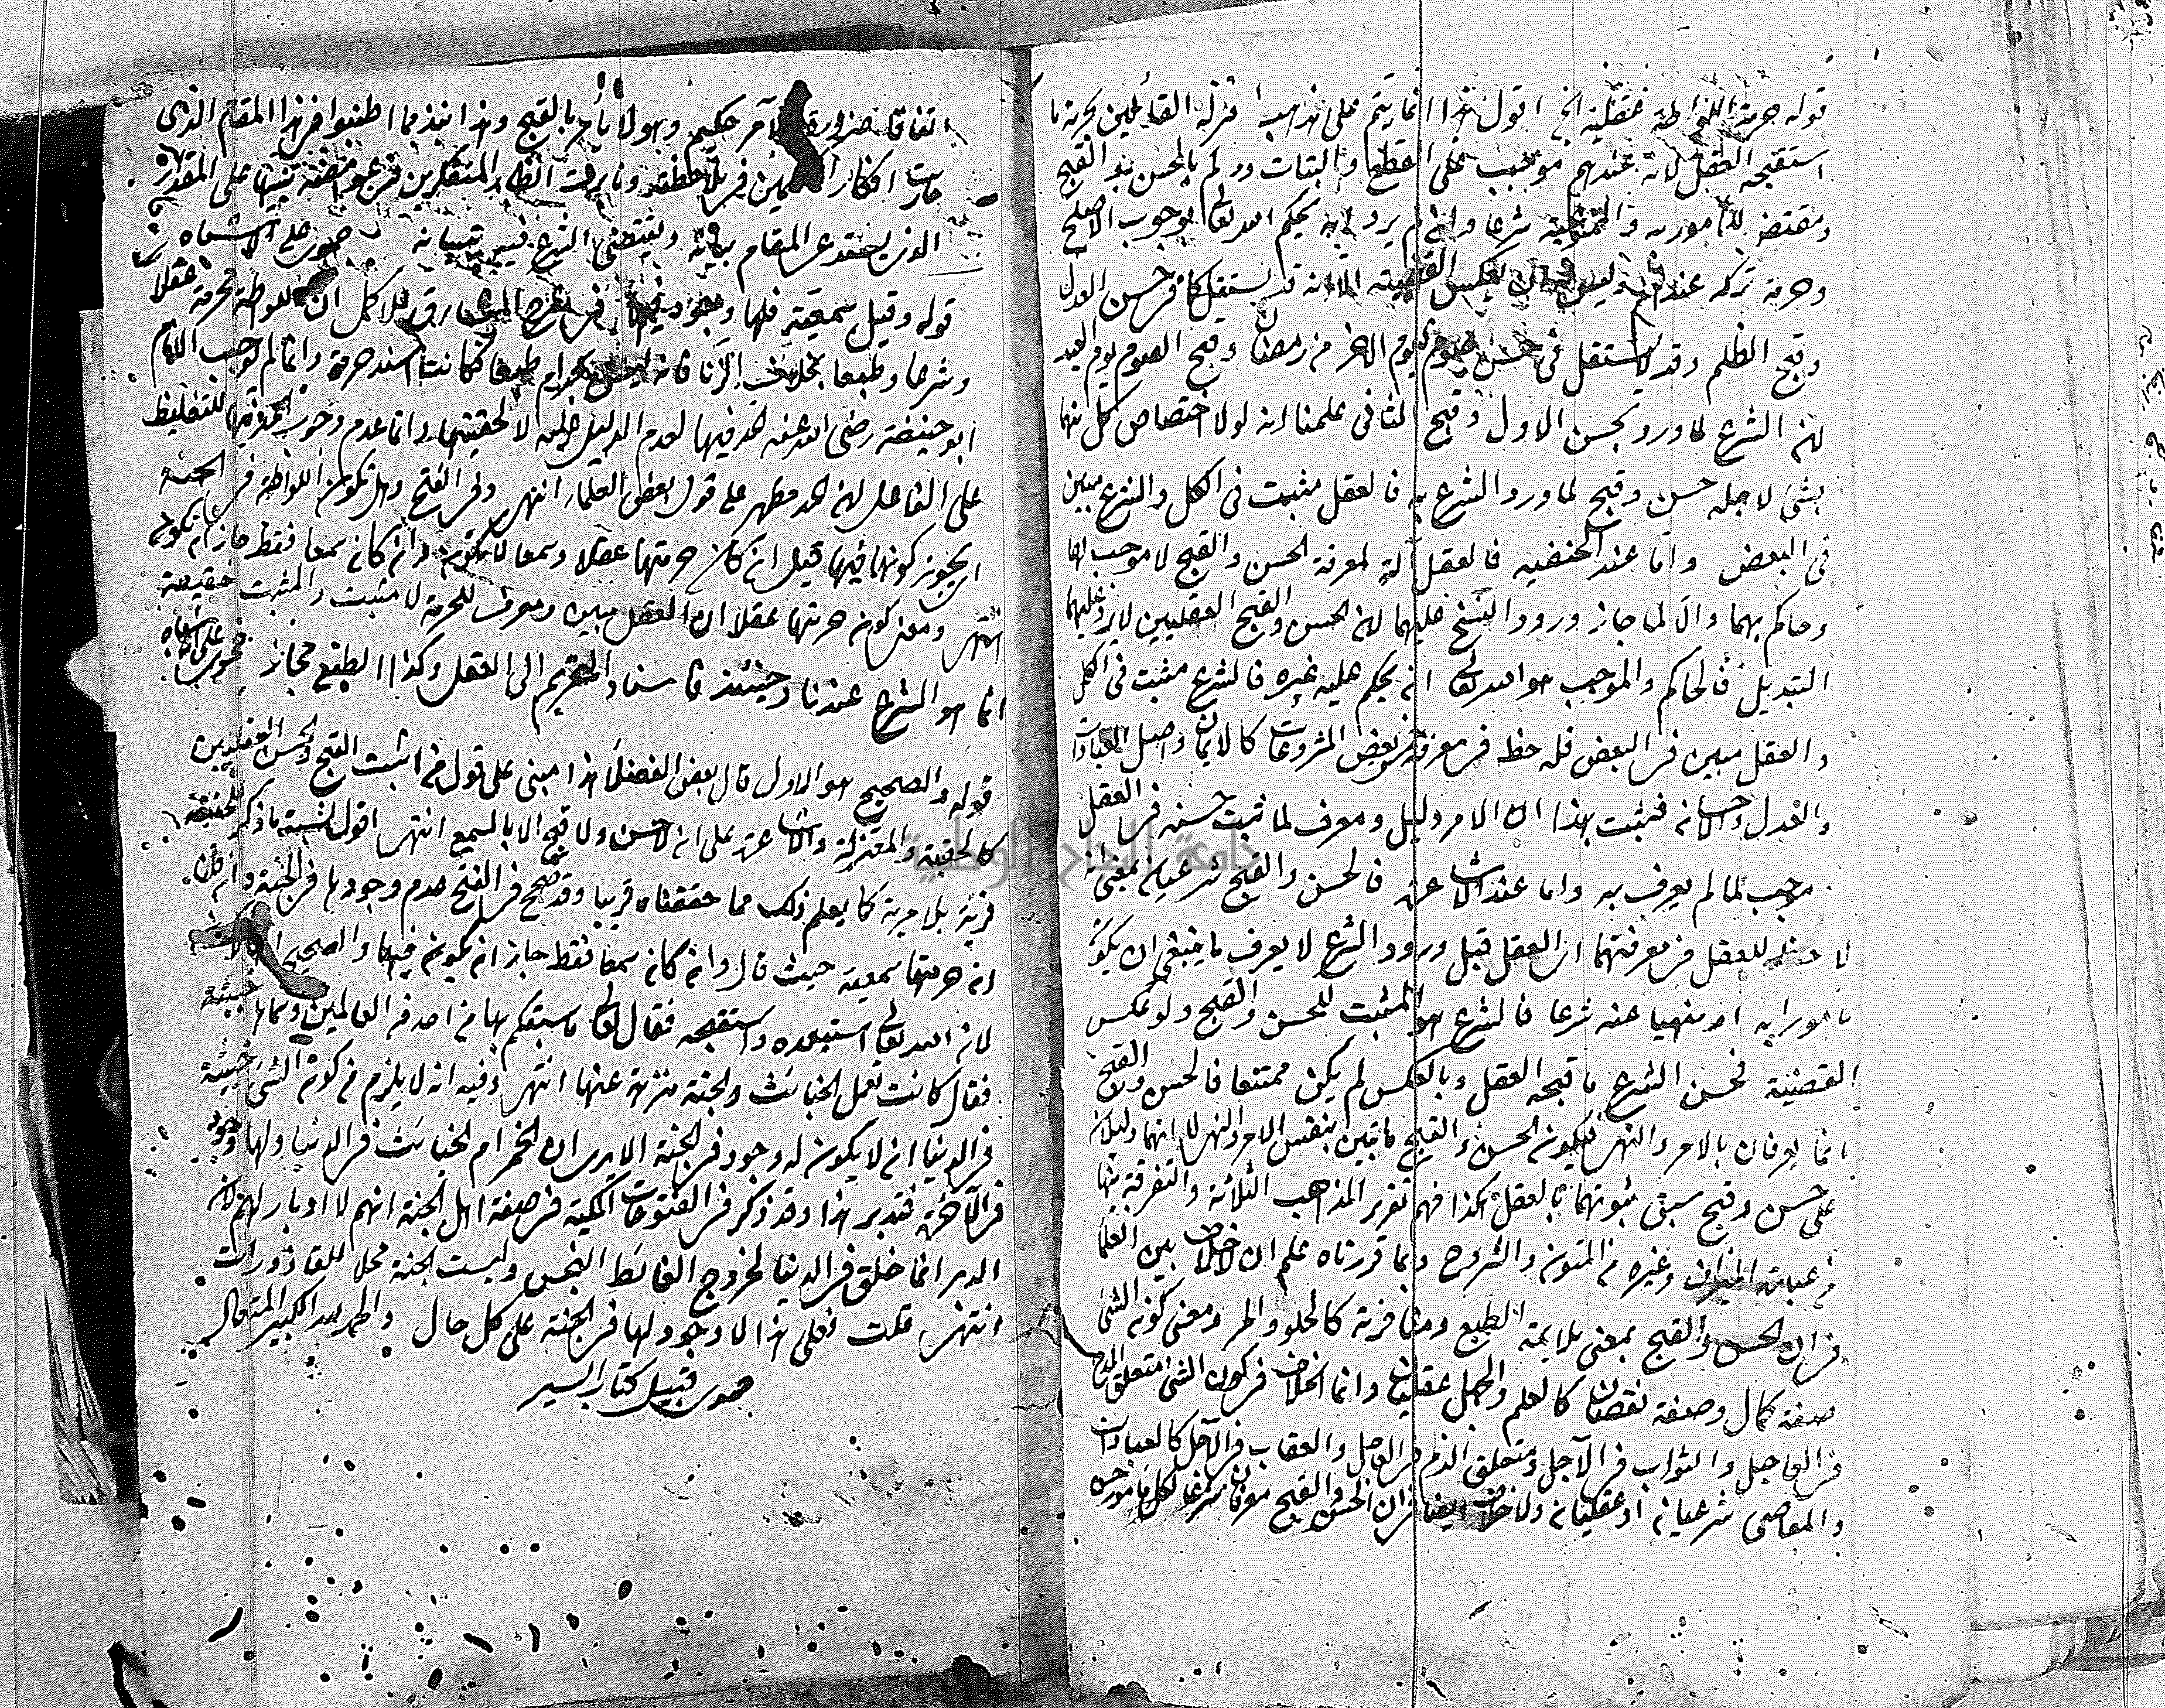 قوله حرمة اللواطة عقلية الخ اقول هذا انما يتم على مذهب المعتزلة القائلين بحرمة ما
استقبحه العقل لانه عندهم موجب على القطع والبتات ورد لم بالحسن بقد القبح
ومقتض للمامورية والمنهية شرعا وان لم يرد به يحكم الله تعالى بوجوب الاصلح
وحرمة تركه عندهم وليس له ان يعكس القضية الا انه قد يستقل كما في حسن العدل
وقبح الظلم وقد لا يستقل في حسن صوم اليوم الاخر من رمضان وقبح الصوم يوم العيد
لان الشرع لما ورد بحسن الاول وقبح الثاني علمنا انه لولا اختصاص كل منهما
بشئ لاجله حسن وقبح لما ورد الشرع به فالعقل مثبت في الكل والشرع مبين
في البعض واما عند الحنفيه فالعقل آلة لمعرفة الحسن والقبح لا موجب لهما
وحاكم بهما والا لما جاز ورود النسخ عليهما لان الحسن والقبح العقليين لا يرد عليهما
التبديل فالحاكم والموجب هو الله تعالى ان يحكم عليه غيره فالشرع مثبت في الكل
والعقل مبين في البعض فله حظ في معرفة بعض المشروعات كالايمان واصل العبادات
والعدل والاحسان فثبت بهذا ان الامر دليل ومعرف لما ثبت حسنه في العقل
موجب لما لم يعرف به واما عند الاشاعرة فالحسن والقبح شرعيان بمعنى انه
لا حظ للعقل في معرفتهما اي العقل قبل ورود الشرع لا يعرف ما ينبغي ان يكون
مامورا به او منهيا عنه شرعا فالشرع هو المثبت للحسن والقبح ولو عكس
القضية فحسن الشرع ما قبحه العقل وبالعكس لم يكن ممتنعا فالحسن والقبح
انما يعرفان بالامر والنهي فيكون الحسن والقبح ثابتين بنفس الامر والنهي لا انهما دليلان
على حسن وقبح سبق ثبوتهما بالعقل هكذا فهم تقرير المذاهب الثلاثة والتفرقة بينها
من عبارة الميزان وغيره من المتون والشروح وبما قررناه علم ان لا خلاف بين العلما
في ان الحسن والقبح بمعنى ملايمة الطبع ومنافرته كالحلو والمر ومعنى كونه الشئ
صفة كمال وصفة نقصان كالعلم والجهل عقليان وانما الخلاف في كون الشئ متعلق المدح
في العاجل والثواب في الآجل ومتعلق الذم في العاجل والعقاب في الآجل كالعبادات
والمعاصي شرعيان او عقليان ولا خلاف ايضا في ان الحسن والقبح كل مامور به حسن
اتفاقا ضرورة الآمر حكيم وهو لا يأمر بالقبح وهذا نبذ مما اطنبوا في هذا المقام الذي
حارت افكار في ملاحظته وتاهت انظار المتفكرين في غوامضه تنبيها على المقدار
الذي يستدعى المقام بيانه ويقتضى الشرع فيه تبيانه حموى على الاشباه
قوله وقيل سمعية فلها وجود فيها في شرح المشارق للاكمل ان اللواطة محرمة عقلا
وشرعا وطبعا بخلاف الزنا فانه ليس بحرام طبعا فكانت اشد حرمة وانما لم يوجب الامام
ابو حنيفة رضي الله عنه الحد فيها لعدم الدليل عليه لا لخفتها وانما عدم وجوب الحد فيها للتغليظ
على الفاعل لان الحد مطهر على قول بعض العلماء انتهى وفي الفتح وهل تكون اللواطة في الجنة
اي يجوز كونها فيها قيل ان كان حرمتها عقلا وسمعا لا تكون وان كان سمعا فقط جاز ان تكون
انتهى ومعنى كون حرمتها عقلا ان العقل مبين ومعرف للحرمة لا مثبت والمثبت حقيقة
انما هو الشرع عندنا وحينئذ فاسناد التحريم الى العقل وكذا الطبع مجاز حموى على اشباه
قوله والصحيح هو الاول قال بعض الفضلا هذا مبنى على قول من اثبت القبح والحسن العقليين
كالحنفية والمعتزلة والاشاعرة على انه لا حسن ولا قبح الا بالسمع انتهى اقول نسبة ما ذكر للحنفية
فرية بلا مرية كما يعلم ذلك مما حققناه قريبا وقد صحح في الفتح عدم وجودها في الجنة وان ظن
ان حرمتها سمعية حيث قال وان كان سمعا فقط جاز ان تكون فيها والصحيح
لان الله تعالى استبعده واستقبحه فقال تعالى ما سبقكم بها من احد من العالمين وسماها خبيثة
فقال كانت تعمل الخبائث والجنة منزهة عنها انتهى وفيه انه لا يلزم من كون الشئ خبيثة
في الدنيا ان لا يكون له وجود في الجنة الا يرى ان الخمر ام الخبائث في الدنيا ولها وجود
في الآخرة فتدبر هذا وقد ذكر في الفتوحات المكية في صفة اهل الجنة انهم لا ادبار لهم لان
الدبر انما خلق في الدنيا لخروج الغائط النجس وليست الجنة محلا للقاذورات
انتهى قلت فعلى هذا لا وجود لها في الجنة على كل حال والحمد لله الكبير المتعال
حموى قبيل كتاب السير